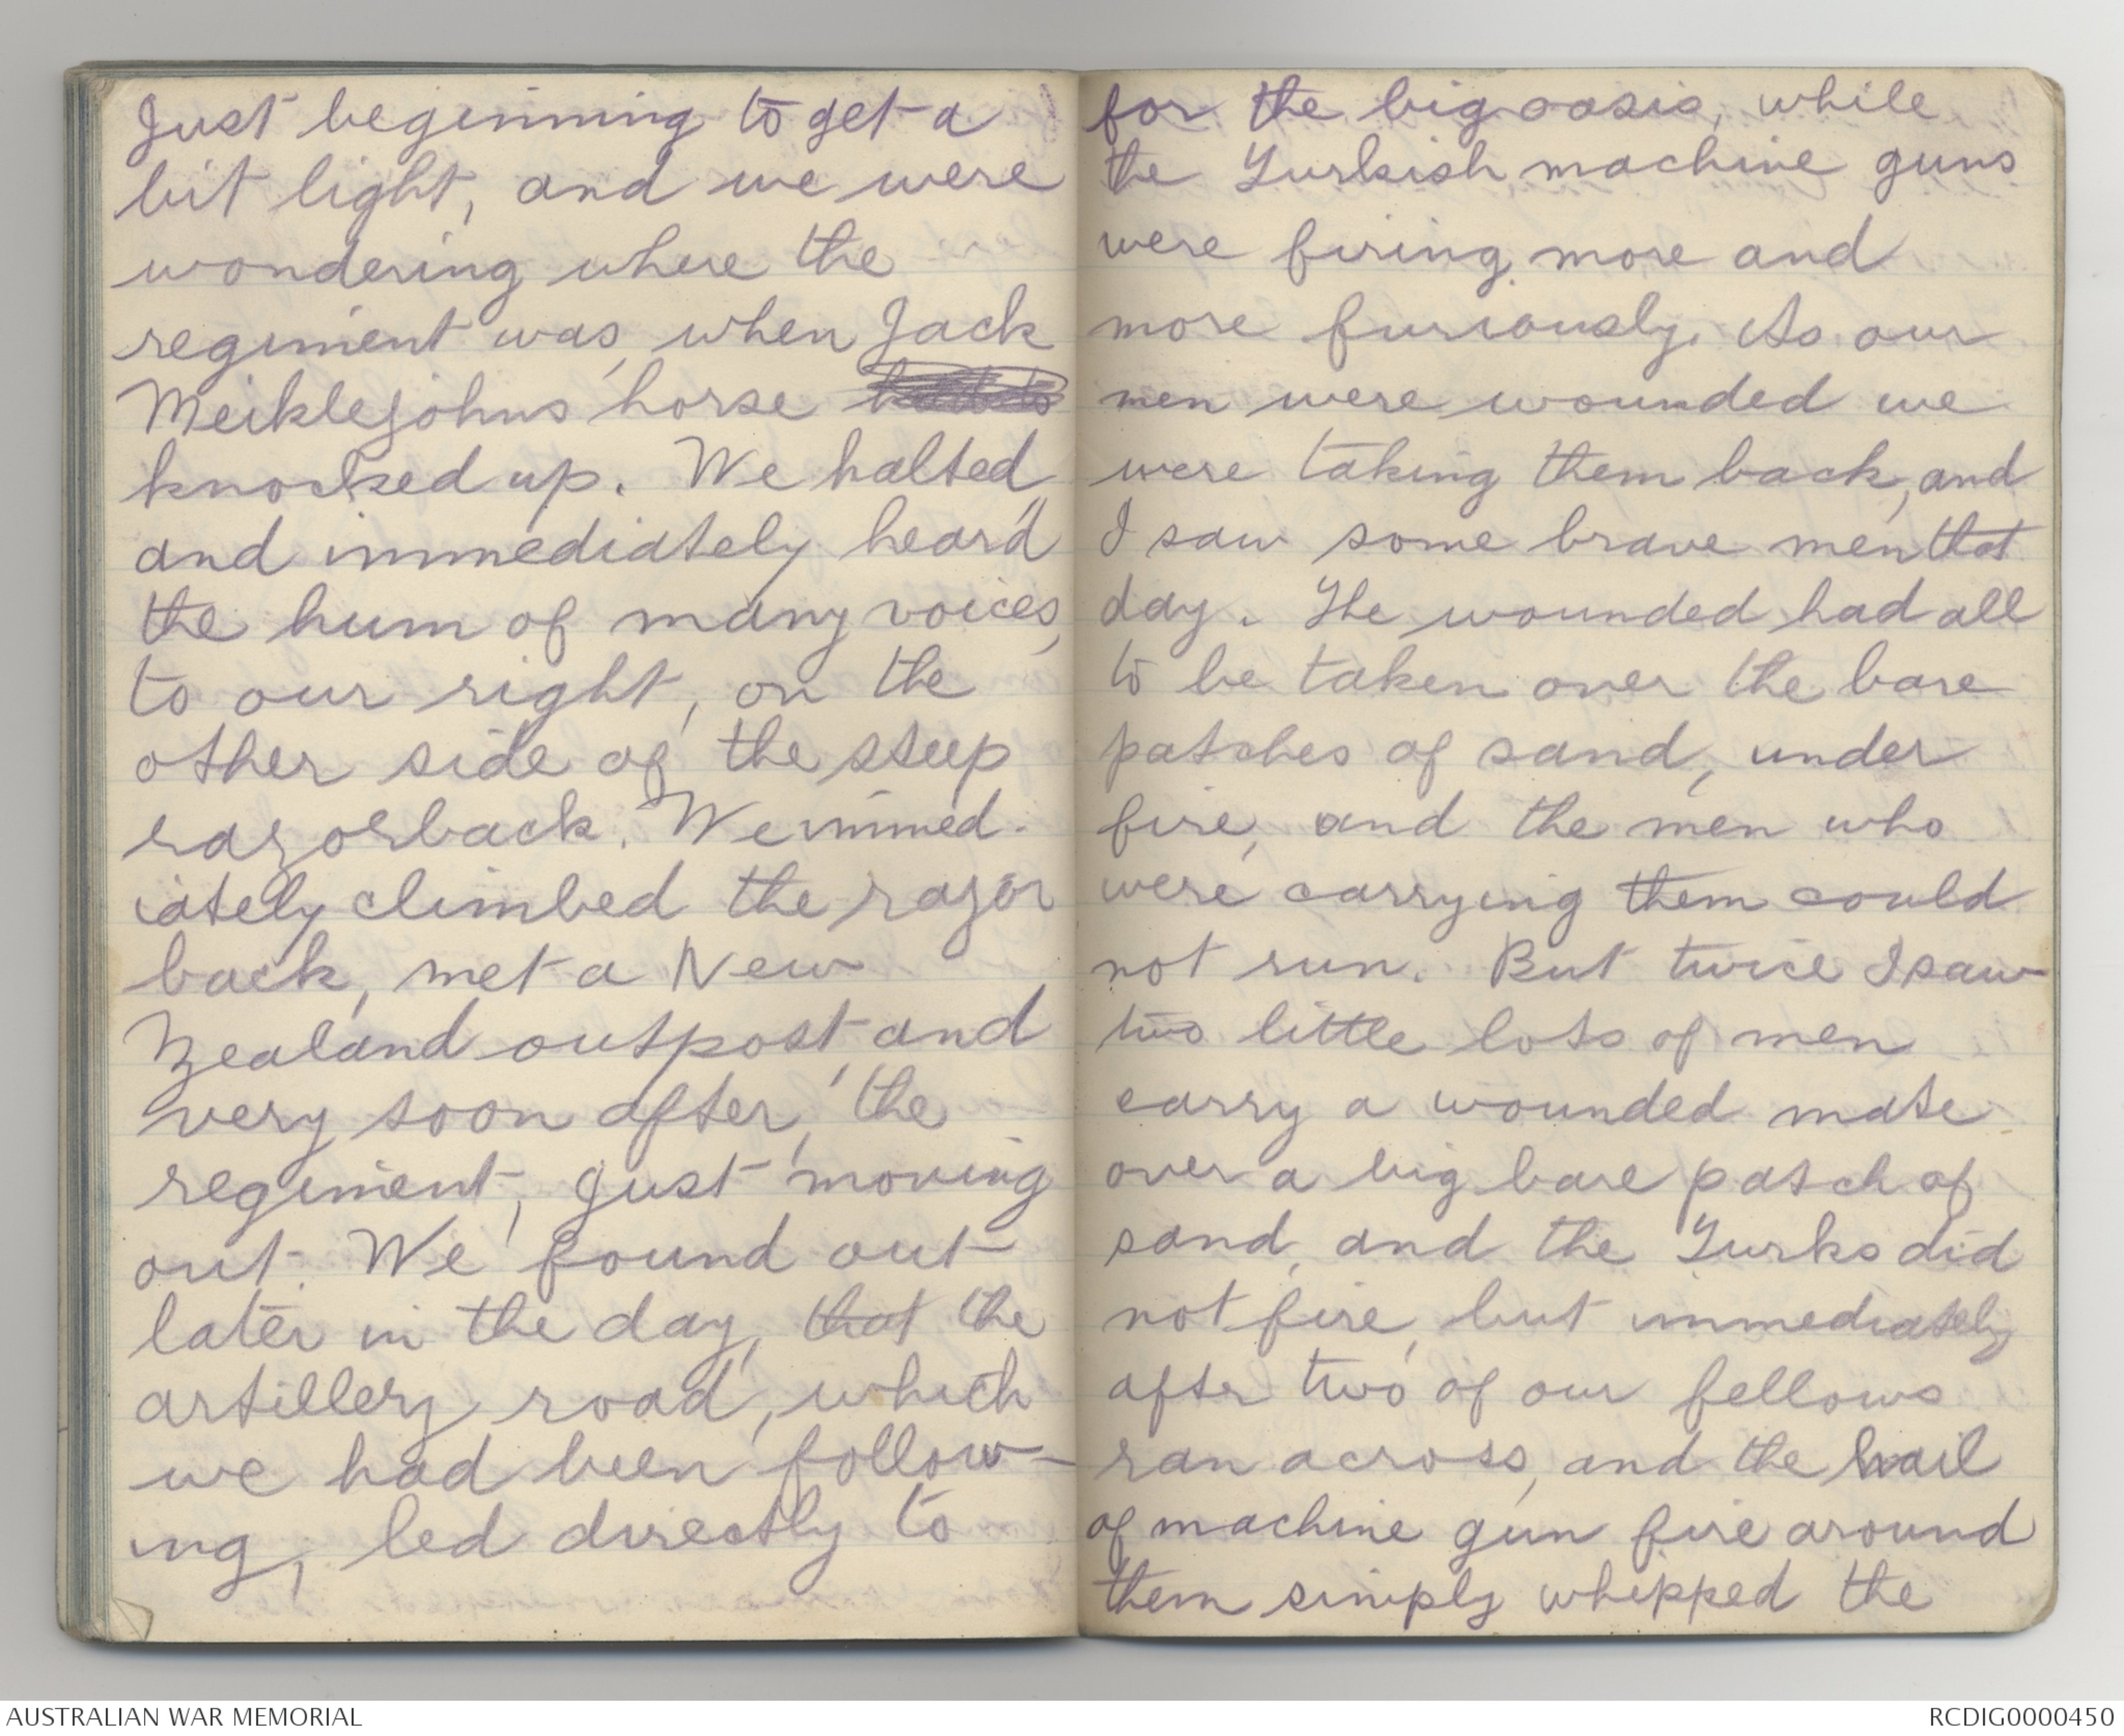 Just beginning to get a
bit light, and we were
wondering where the
regiment was, when Jack
Meiklejohns horse
knocked up. We halted,
and immediately heard
the hum of many voices,
to our right, on the
other side of the steep
razorback. We immed-
iately climbed the razor
back, met a New
Zealand outpost, and
very soon after, the
regiment, just moving
out. We found out
later in the day, that the
artillery road, which
we had been follow-
ing, led directly to
for the big oasis, while
the Turkish machine guns
were firing more and
more furiously. As our
men were wounded we
were taking them back, and
I saw some brave men that
day. The wounded had all
to be taken over the bare
patches of sand, under
fire, and the men who
were carrying them could
not run. But twice I saw
two little lots of men
carry a wounded mate
over a big bare patch of
sand, and the Turks did
not fire, but immediately
after two of our fellows
ran across, and the hail
of machine gun fire around
them simply whipped the
AUSTRALIAN WAR MEMORIAL
RCDIG0000450